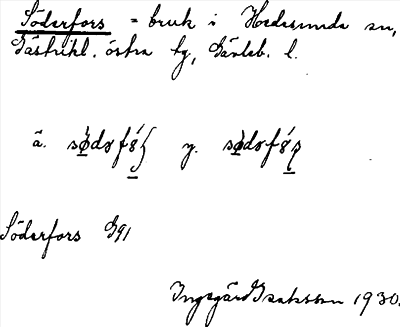 Söderfors = bruk i Hedesunda sn,
Gästrikl. östra tg, Gävleb. l.
ä. sø̀dɘrfø̀ʃ y. sø̀dɘrfø̀ʂ
Söderfors G91
Ingegärd Isaksson 1930.